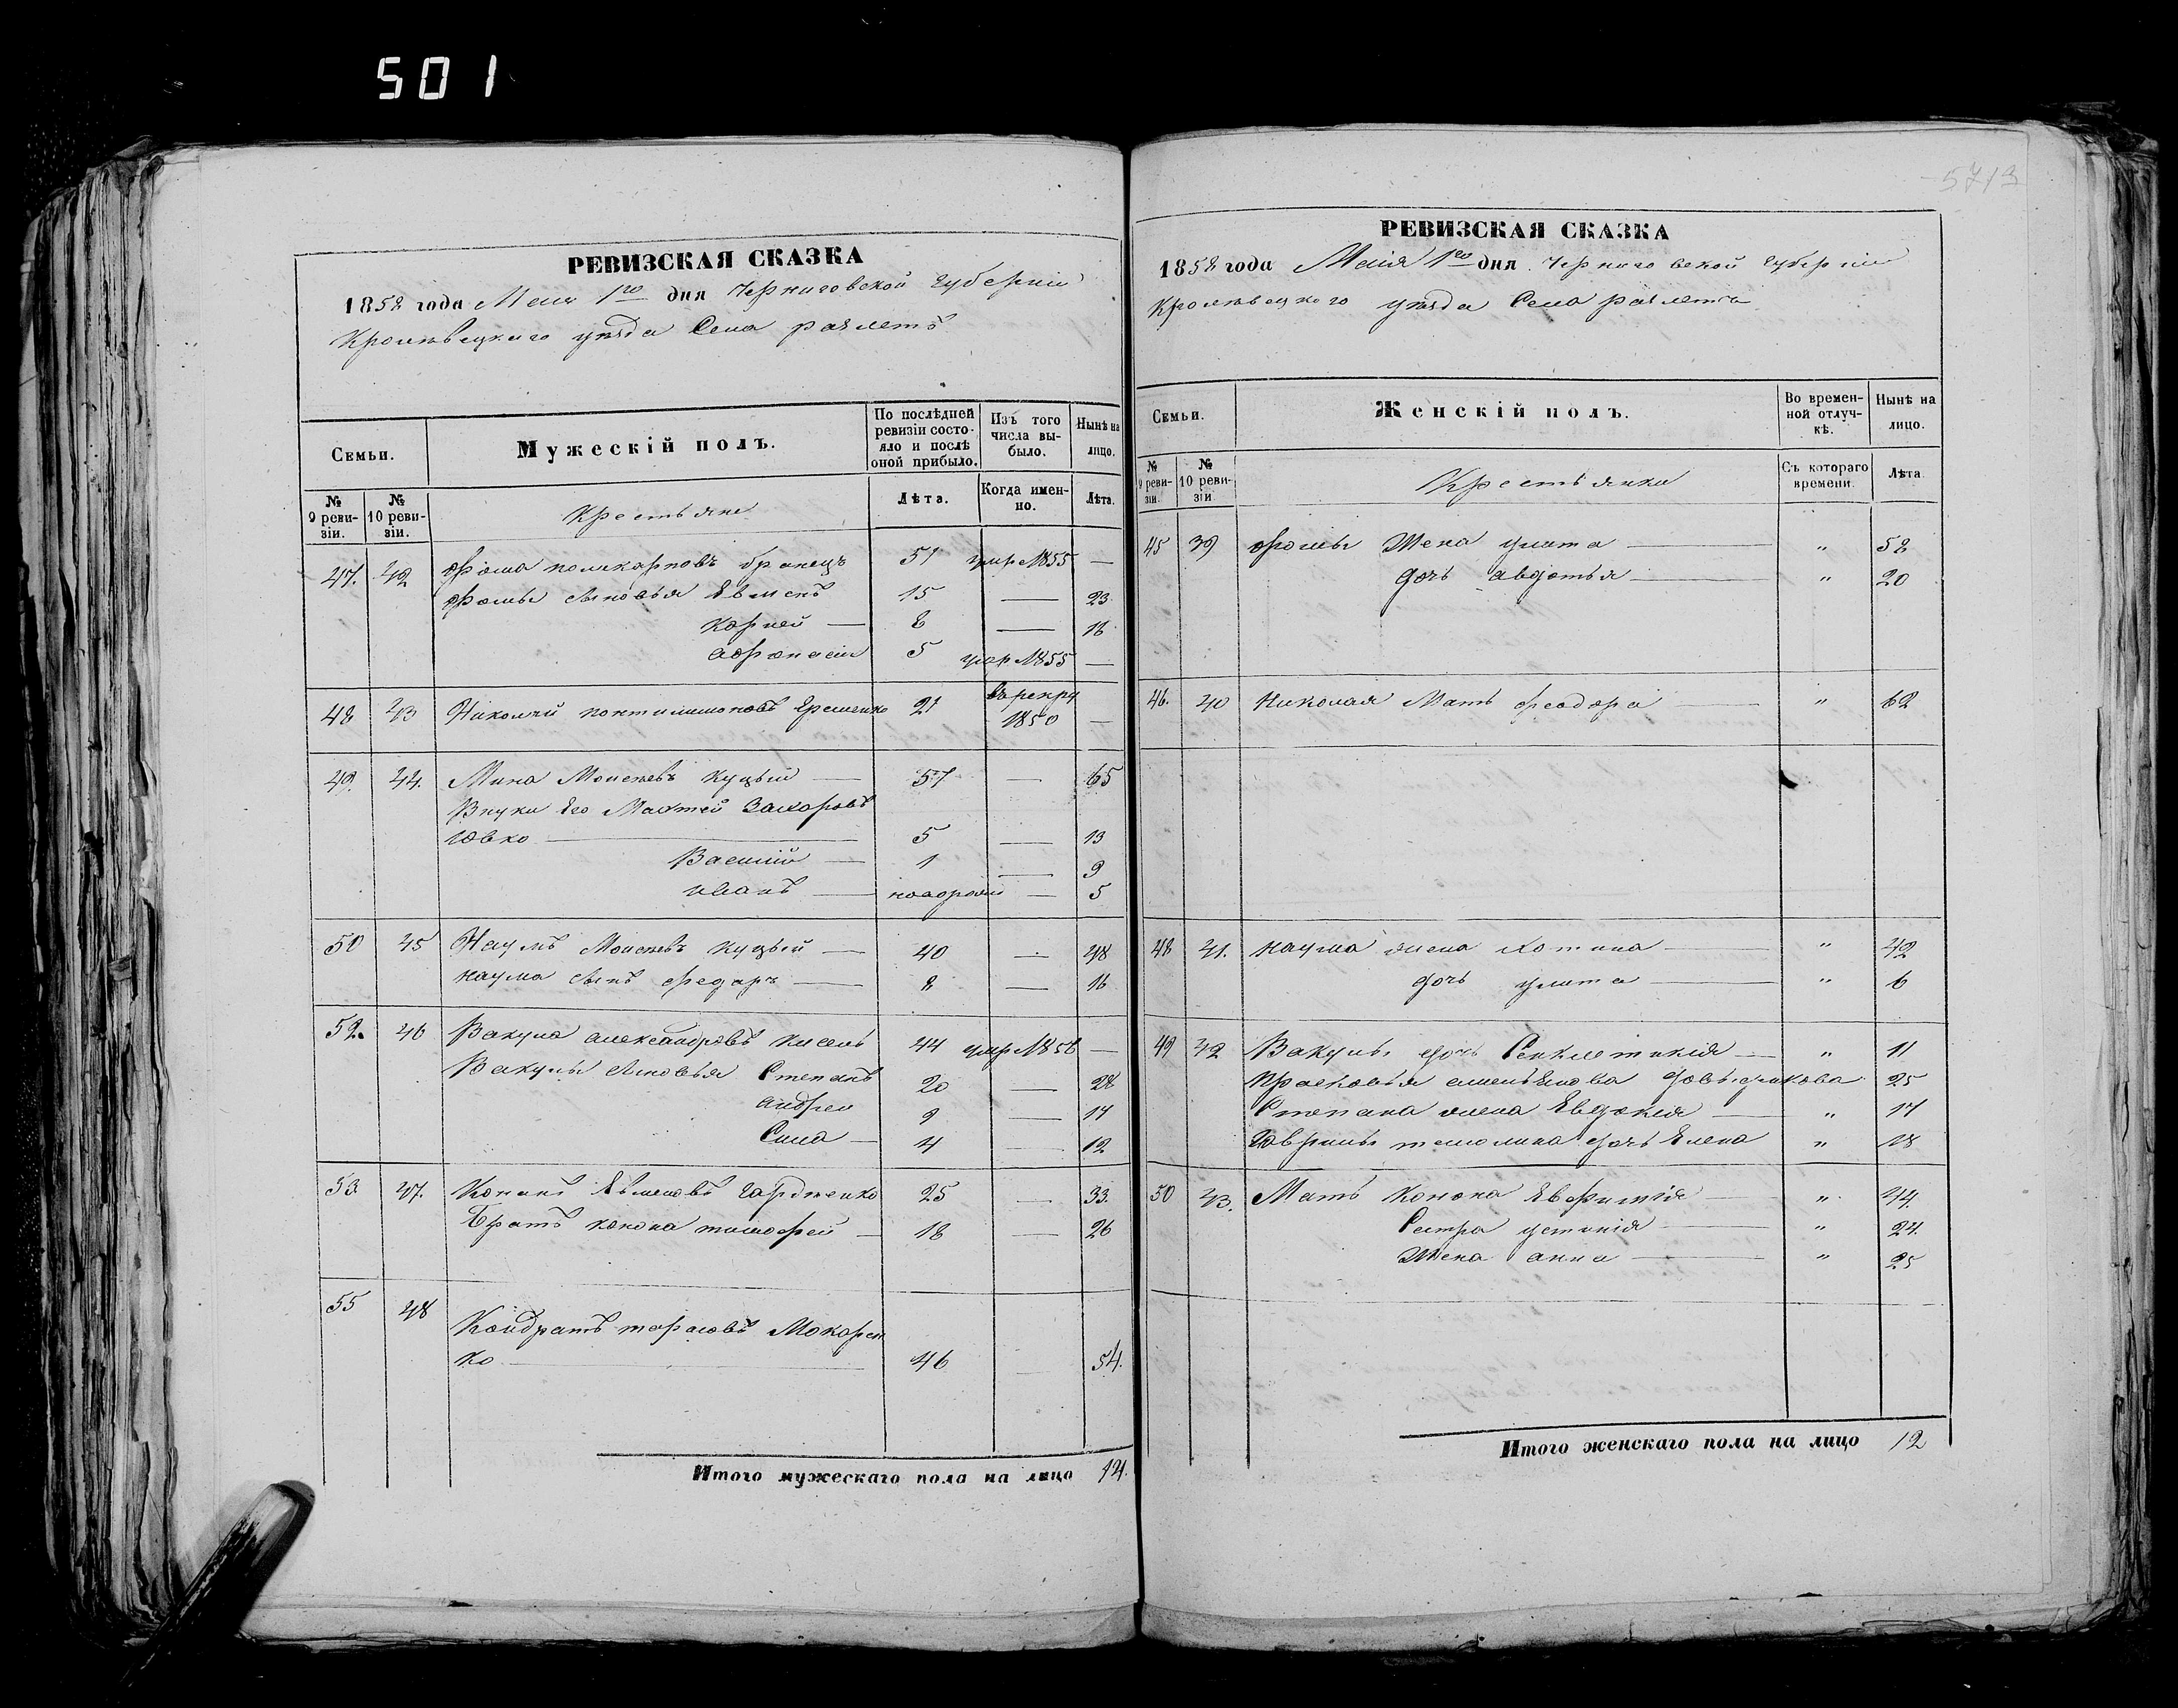 501
РЕВИЗСКАЯ СКАЗКА
1858 года Мая 1го дня Черниговской Губернiи
Кролевецкого уезда Села
Семьи.
Мужескiй полъ.
По послѣдней ревизiи состояло и послѣ оной прибыло.
Изъ того числа выбыло.
Нынѣ на лицо.
№ 9 ревизiи.
№ 10 ревизiи.
Крестьяне
Лѣта.
Когда именно.
Лѣта.
47. 42 Фома поликарповъ 51 умр 1855 —
Фомы сыновья Евменъ 15 — 23
Корней — 8 — 16
Афанасiй 5 умр 1855 —
48 43 Николай пантилимоновъ Ерешенко 21 въ рекру
1850 —
49. 44. Мина Моисеевъ Куцый — 57 — 65
Внуки Его Матвей Захаровъ
Ювко — 5 — 13
Василiй — 1 — 9
иванъ — новорожд — 5
50 45 Наумъ Моисеевъ Куцый — 40 — 48
наума сынъ федоръ — 8 — 16
52. 46 Вакула александровъ кисель 44 умр 1856 —
Вакулы сыновья Степанъ 20 — 28
андрей 9 — 17
Сила — 4 — 12
53 47. Кононъ Евменовъ 25 — 33.
Братъ конона тимофей — 18 — 26
55 48 Кондратъ тарасовъ Макарен
ко — 46 — 54.
Итого мужескаго пола на лицо 14.
5713
РЕВИЗСКАЯ СКАЗКА
1858 года Маiя 1го дня Черниговской Губернiи
Кролевецкого уезда Села
Семьи.
Женскiй полъ.
Во временной отлучкѣ.
Нынѣ на лицо.
№ 9 ревизiи.
№ 10 ревизiи.
Крестьянки
Съ котораго времени.
Лѣта
45 39 Фомы Жена улита — " 58
дочь авдотья — " 20
46. 40 Николая Мать феодора — " 62
48 41. наума жена хотина — " 42
дочь улита — " 6
49 42 Вакулы дочь Синклетикiя — " 11
прасковья 25
Степана жена Евдокiя — " 17
Гаврилы дочь Елена " 18
50 43. Мать Конона Евфимiя — " 44.
Сестра устинiя — " 24.
Жена анна — " 25
Итого женскаго пола на лицо 12